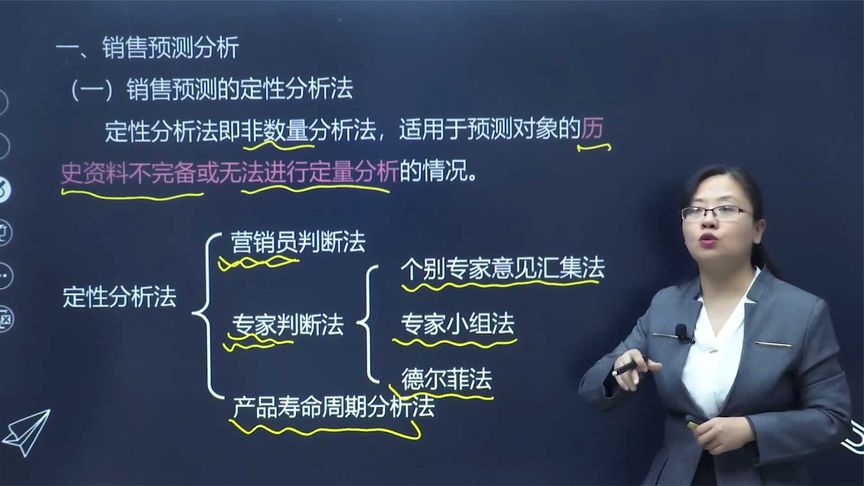 一、销售预测分析
（一）销售预测的定性分析法
定性分析法即非数量分析法，适用于预测对象的历
史资料不完备或无法进行定量分析的情况。
定性分析法
营销员判断法
专家判断法
个别专家意见汇集法
专家小组法
德尔菲法
产品寿命周期分析法